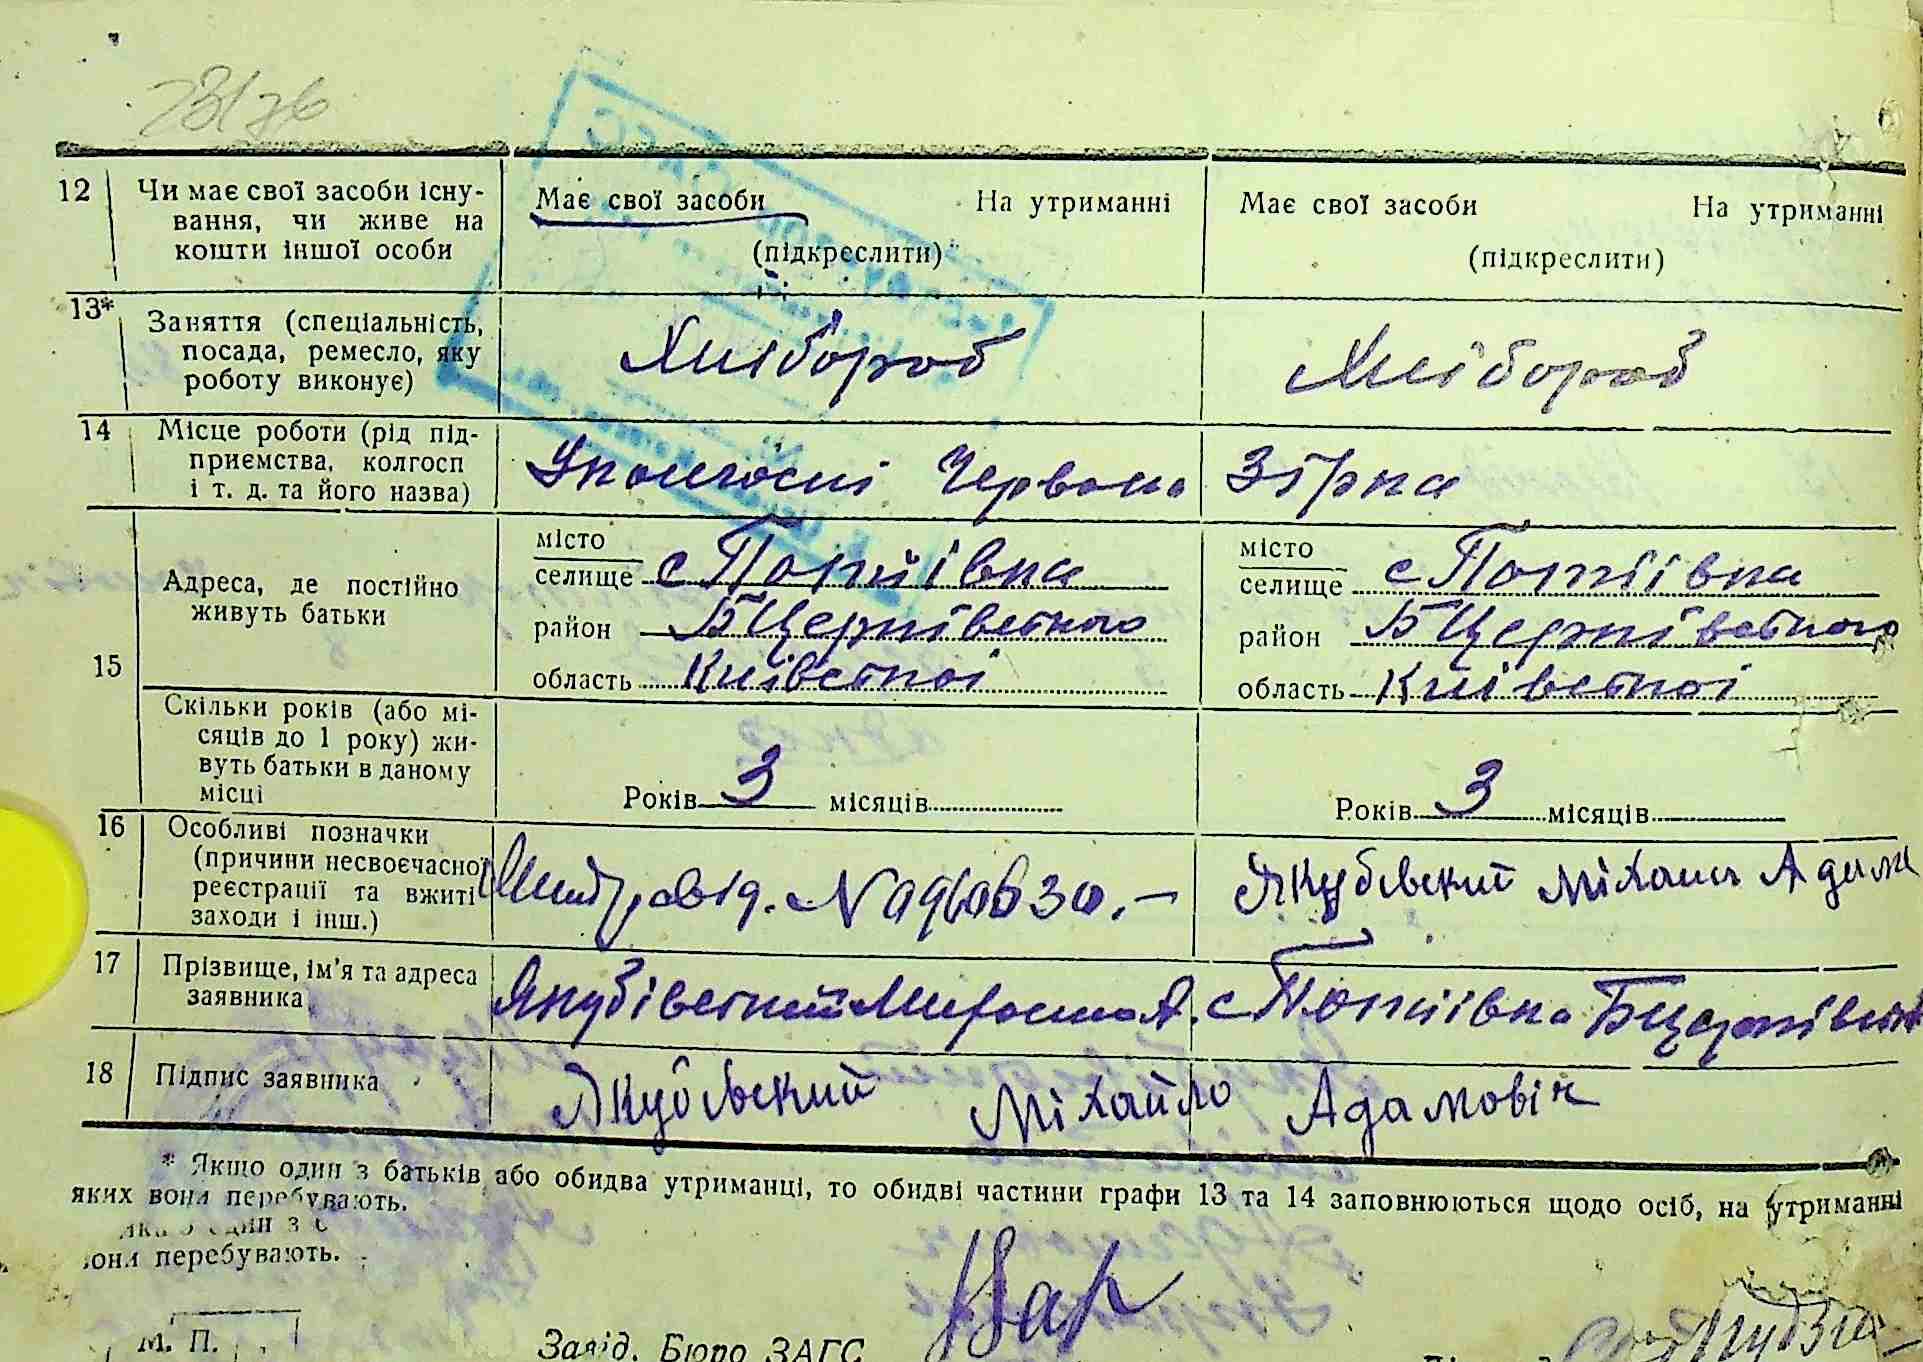 12 Чи має свої засоби існу-
вання, чи живе на
кошти іншої особи
Має свої засоби На утриманні
(підкреслити)
Має свої засоби На утриманні
(підкреслити)
13* Заняття (спеціальність,
посада, ремесло, яку
роботу виконує)
Хлібороб
Хлібороб
14 Місце роботи (рід під-
приємства, колгосп
і т. д. та його назва)
У колгоспі Червона Зірка
15 Адреса, де постійно
живуть батьки
місто
селище с Потіївка
район БЦерківського
область Київської
місто
селище с Потіївка
район БЦерківського
область Київської
Скільки років (або мі-
сяців до 1 року) жи-
вуть батьки в даному
місці
Років 3 місяців
Років 3 місяців
16 Особливі позначки
(причини несвоєчасної
реєстрації та вжиті
заходи і інш.)
Якубівский Міхаил Адам
17 Прізвище, ім'я та адреса
заявника
Якубівський А. с Потіївка БЦерківськ
18 Підпис заявника
Якубівский Міхайло Адамовіч
* Якщо один з батьків або обидва утриманці, то обидві частини графи 13 та 14 заповнюються щодо осіб, на утриманні
яких вони перебувають.
один з
вони перебувають.
М. П.
Завід. Бюро ЗАГС